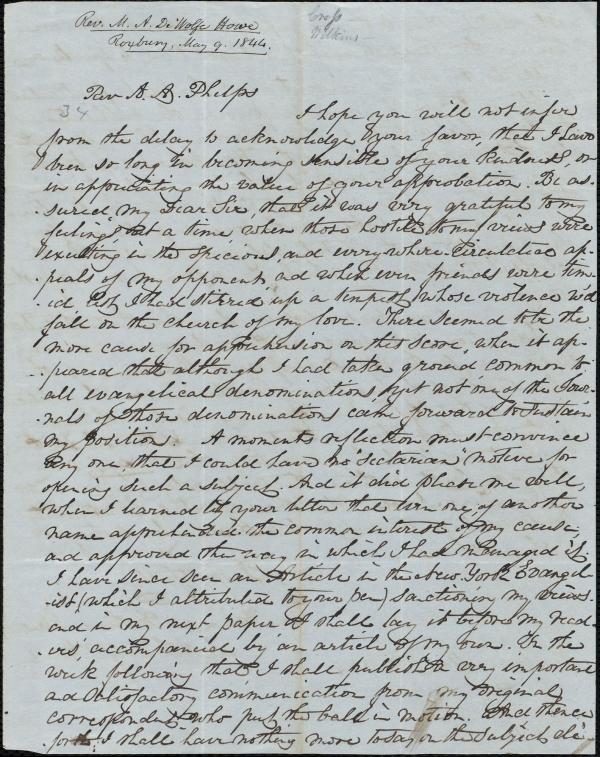 Rev. M. A. DeWolfe Howe
Roxbury, May 9. 1844.
Rev A. A. Phelps
34
I hope you will not infer
from the delay to acknowledge your favor, that I have
been so long in becoming sensible of your kindness, or
in appreciating the value of your approbation. Be as-
sured, my Dear Sir, that it was very grateful to my
feelings, at a time when those hostile to my views were
exulting in the specious, and every where circulated ap-
peals of my opponent, and when even friends were tim-
id lest I had stirred up a tempest, whose violence wd
fall on the church of my love. There seemed to be the
more cause for apprehension on this score, when it ap-
peared that although I had taken ground common to
all evangelical denominations, yet not one of the Jour-
nals of those denominations came forward to sustain
my position. A moments reflection must convince
any one, that I could have no "sectarian" motive for
opening such a subject. And it did please me well,
when I learned by your letter that even one, of another
name apprehended the common interest of my cause,
and approved the way in which I had managed it.
I have since seen an Article in the New York Evangel-
ist (which I attributed to your pen) sanctioning my views.
and in my next paper I shall lay it before my read-
ers, accompanied by an article of my own. In the
week following that I shall publish a very important
and satisfactory communication from my original
correspondent who put the ball in motion. And thence
forth I shall have nothing more to say on the subject di-